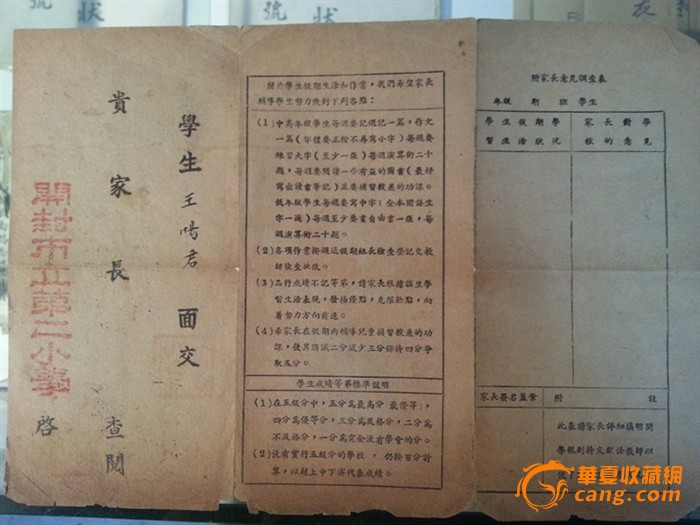 狀
號
狀
號
友
學生王暢君 面交
貴家長 查閱
開封市立第二小學 啓
關於學生假期生活和作業,我們希望家長
輔導學生努力做到下列各點:
(1)中高年級學生每週要記週記一篇,作文
一篇(字體要正楷不再寫小字)每週要
練習大字(至少一張)每週演算術二十
題,每週要閱讀一些有益的圖書(最好
寫出讀書筆記)並要補習較差的功課。
低年級學生每週至少要畫自由畫一張,每
週演算術二十題。
(2)各項作業按週送假期組長檢查登記交教
師檢查批改。
(3)品行成績不記等第,請家長根據該生學
習生活表現,發揚優點,克服缺點,向
着努力方向前進。
(4)希家長在假期內輔導兒童補習較差的功
課,使其消滅二分減少三分保持四分爭
取五分。
學生成績等第標準說明
(1)在五級分中,五分為最高分「最優等」,
四分為優等分,三分為及格分,二分為
不及格分,一分為完全沒有學會的分。
(2)沒有實行五級分的學校,仍按百分計
算,以超上中下劣代表成績。
附家長意見調查表
年級 期 班 學生
學生假期學
習生活狀況
家長對學
校的意見
家長簽名蓋章
附 註
此表請家長詳細填明開
學報到時交
教師以
華夏收藏網
cang.com